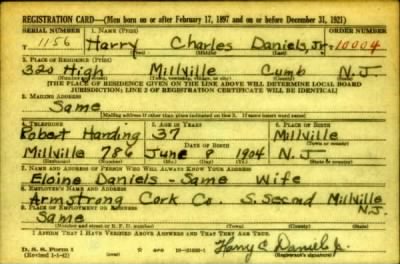 REGISTRATION CARD—(Men born on or after February 17, 1897 and on or before December 31, 1921)
SERIAL NUMBER 1. NAME (Print) ORDER NUMBER
1156 Harry Charles Daniels, Jr. 10004
(First) (Middle) (Last)
2. PLACE OF RESIDENCE (Print)
320 High Millville Cumb N.J.
(Number and street) (Town, township, village, or city) (County) (State)
[THE PLACE OF RESIDENCE GIVEN ON THE LINE ABOVE WILL DETERMINE LOCAL BOARD
JURISDICTION; LINE 2 OF REGISTRATION CERTIFICATE WILL BE IDENTICAL]
3. MAILING ADDRESS
Same
[Mailing address if other than place indicated on line 2. If same insert word same]
4. TELEPHONE 5. AGE IN YEARS 6. PLACE OF BIRTH
Robert Harding 37 Millville
DATE OF BIRTH (Town or county)
Millville 786 June 9 1904 N.J.
(Exchange) (Number) (Mo.) (Day) (Yr.) (State or country)
7. NAME AND ADDRESS OF PERSON WHO WILL ALWAYS KNOW YOUR ADDRESS
Eloine Daniels - Same Wife
8. EMPLOYER'S NAME AND ADDRESS
Armstrong Cork Co. S. Second Millville
N.J.
9. PLACE OF EMPLOYMENT OR BUSINESS
Same
(Number and street or R. F. D. number) (Town) (County) (State)
I AFFIRM THAT I HAVE VERIFIED ABOVE ANSWERS AND THAT THEY ARE TRUE.
D. S. S. Form 1
(Revised 1-1-42) (over)
Harry C Daniels Jr.
(Registrant's signature)